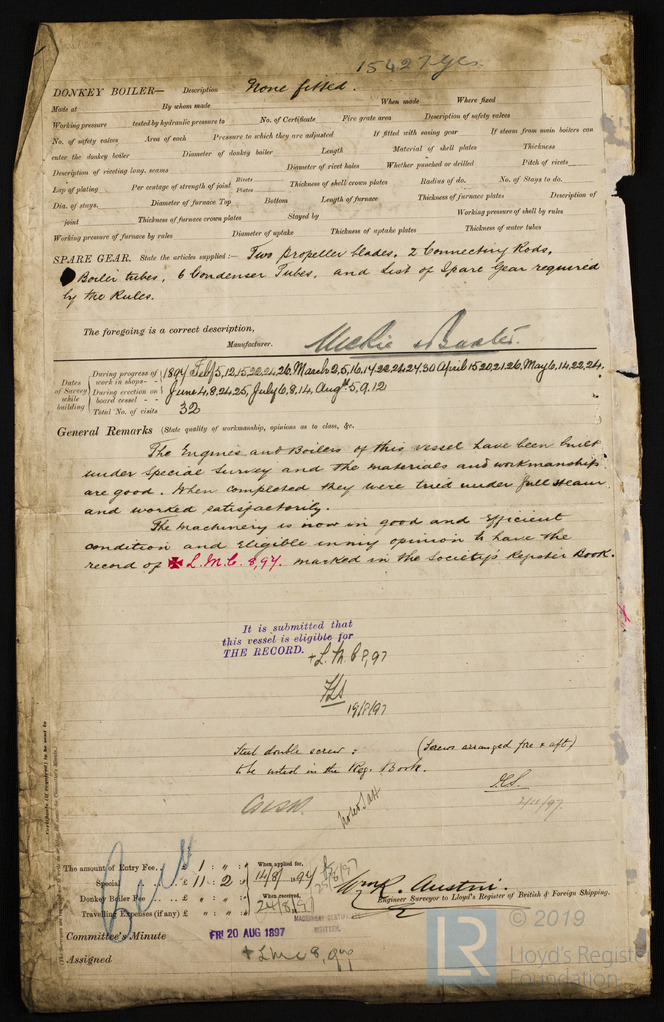 15427 Gls.
DONKEY BOILER— Description None fitted.
Made at By whom made When made Where fixed
Working pressure tested by hydraulic pressure to No. of Certificate Fire grate area Description of safety valves
No. of safety valves Area of each Pressure to which they are adjusted If fitted with easing gear If steam from main boilers can
enter the donkey boiler Diameter of donkey boiler Length Material of shell plates Thickness
Description of riveting long. seams Diameter of rivet holes Whether punched or drilled Pitch of rivets
Lap of plating Per centage of strength of joint Rivets Plates Thickness of shell crown plates Radius of do. No. of Stays to do.
Dia. of stays. Diameter of furnace Top Bottom Length of furnace Thickness of furnace plates Description of
joint Thickness of furnace crown plates Stayed by Working pressure of shell by rules
Working pressure of furnace by rules Diameter of uptake Thickness of uptake plates Thickness of water tubes
SPARE GEAR. State the articles supplied:— Two propeller blades, 2 Connecting Rods,
Boiler tubes, 6 Condenser Tubes, and List of Spare Gear required
by the Rules.
The foregoing is a correct description,
Manufacturer. McKie & Baxter.
Dates of Survey while building
During progress of work in shops - - 1897 Feb 5,12,15,22,24,26, March 2,5,16,17,22,24,27,30 April 15,20,21,26, May 6,14,22,24,
During erection on board vessel - - June 4,8,24,25, July 6,8,14, Augt 5,9,12
Total No. of visits 32
General Remarks (State quality of workmanship, opinions as to class, &c.
The Engines and Boilers of this vessel have been built
under Special Survey and the materials and workmanship
are good. When completed they were tried under full steam
and worked satisfactorily.
The machinery is now in good and efficient
condition and eligible in my opinion to have the
record of ✠ L.M.C. 8,97. marked in the Society's Register Book.
It is submitted that
this vessel is eligible for
THE RECORD. + L.M.C 8,97
19/8/97
Steel double screw: (Screws arranged fore & aft)
to be noted in the Reg. Book.
The amount of Entry Fee.. £ 1 : " : " When applied for,
Special .. .. £ 11 : 2 : " 14/8/1897
Donkey Boiler Fee .. .. £ " : " : " When received,
Travelling Expenses (if any) £ " : " : " 24/8/97
Wm R. Austin.
Engineer Surveyor to Lloyd's Register of British & Foreign Shipping.
MACHINERY CERTIFICATE
WRITTEN.
Committee's Minute FRI 20 AUG 1897
Assigned + LMC 8,97
© 2019
LR Lloyd's Register
Foundation